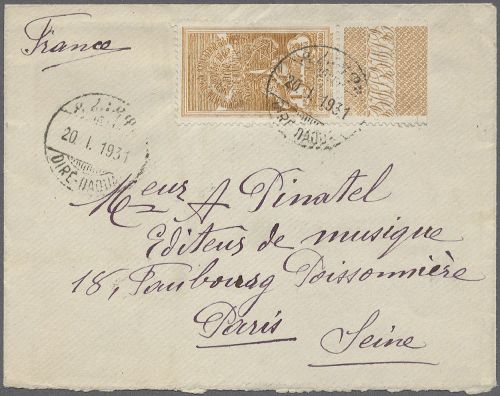 France
20. I. 1931
DIRÉ-DAOUA
20. I. 1931
DIRÉ-DAOUA
Meur A Pinatel
Editeur de musique
18, Faubourg Poissonnière
Paris
Seine